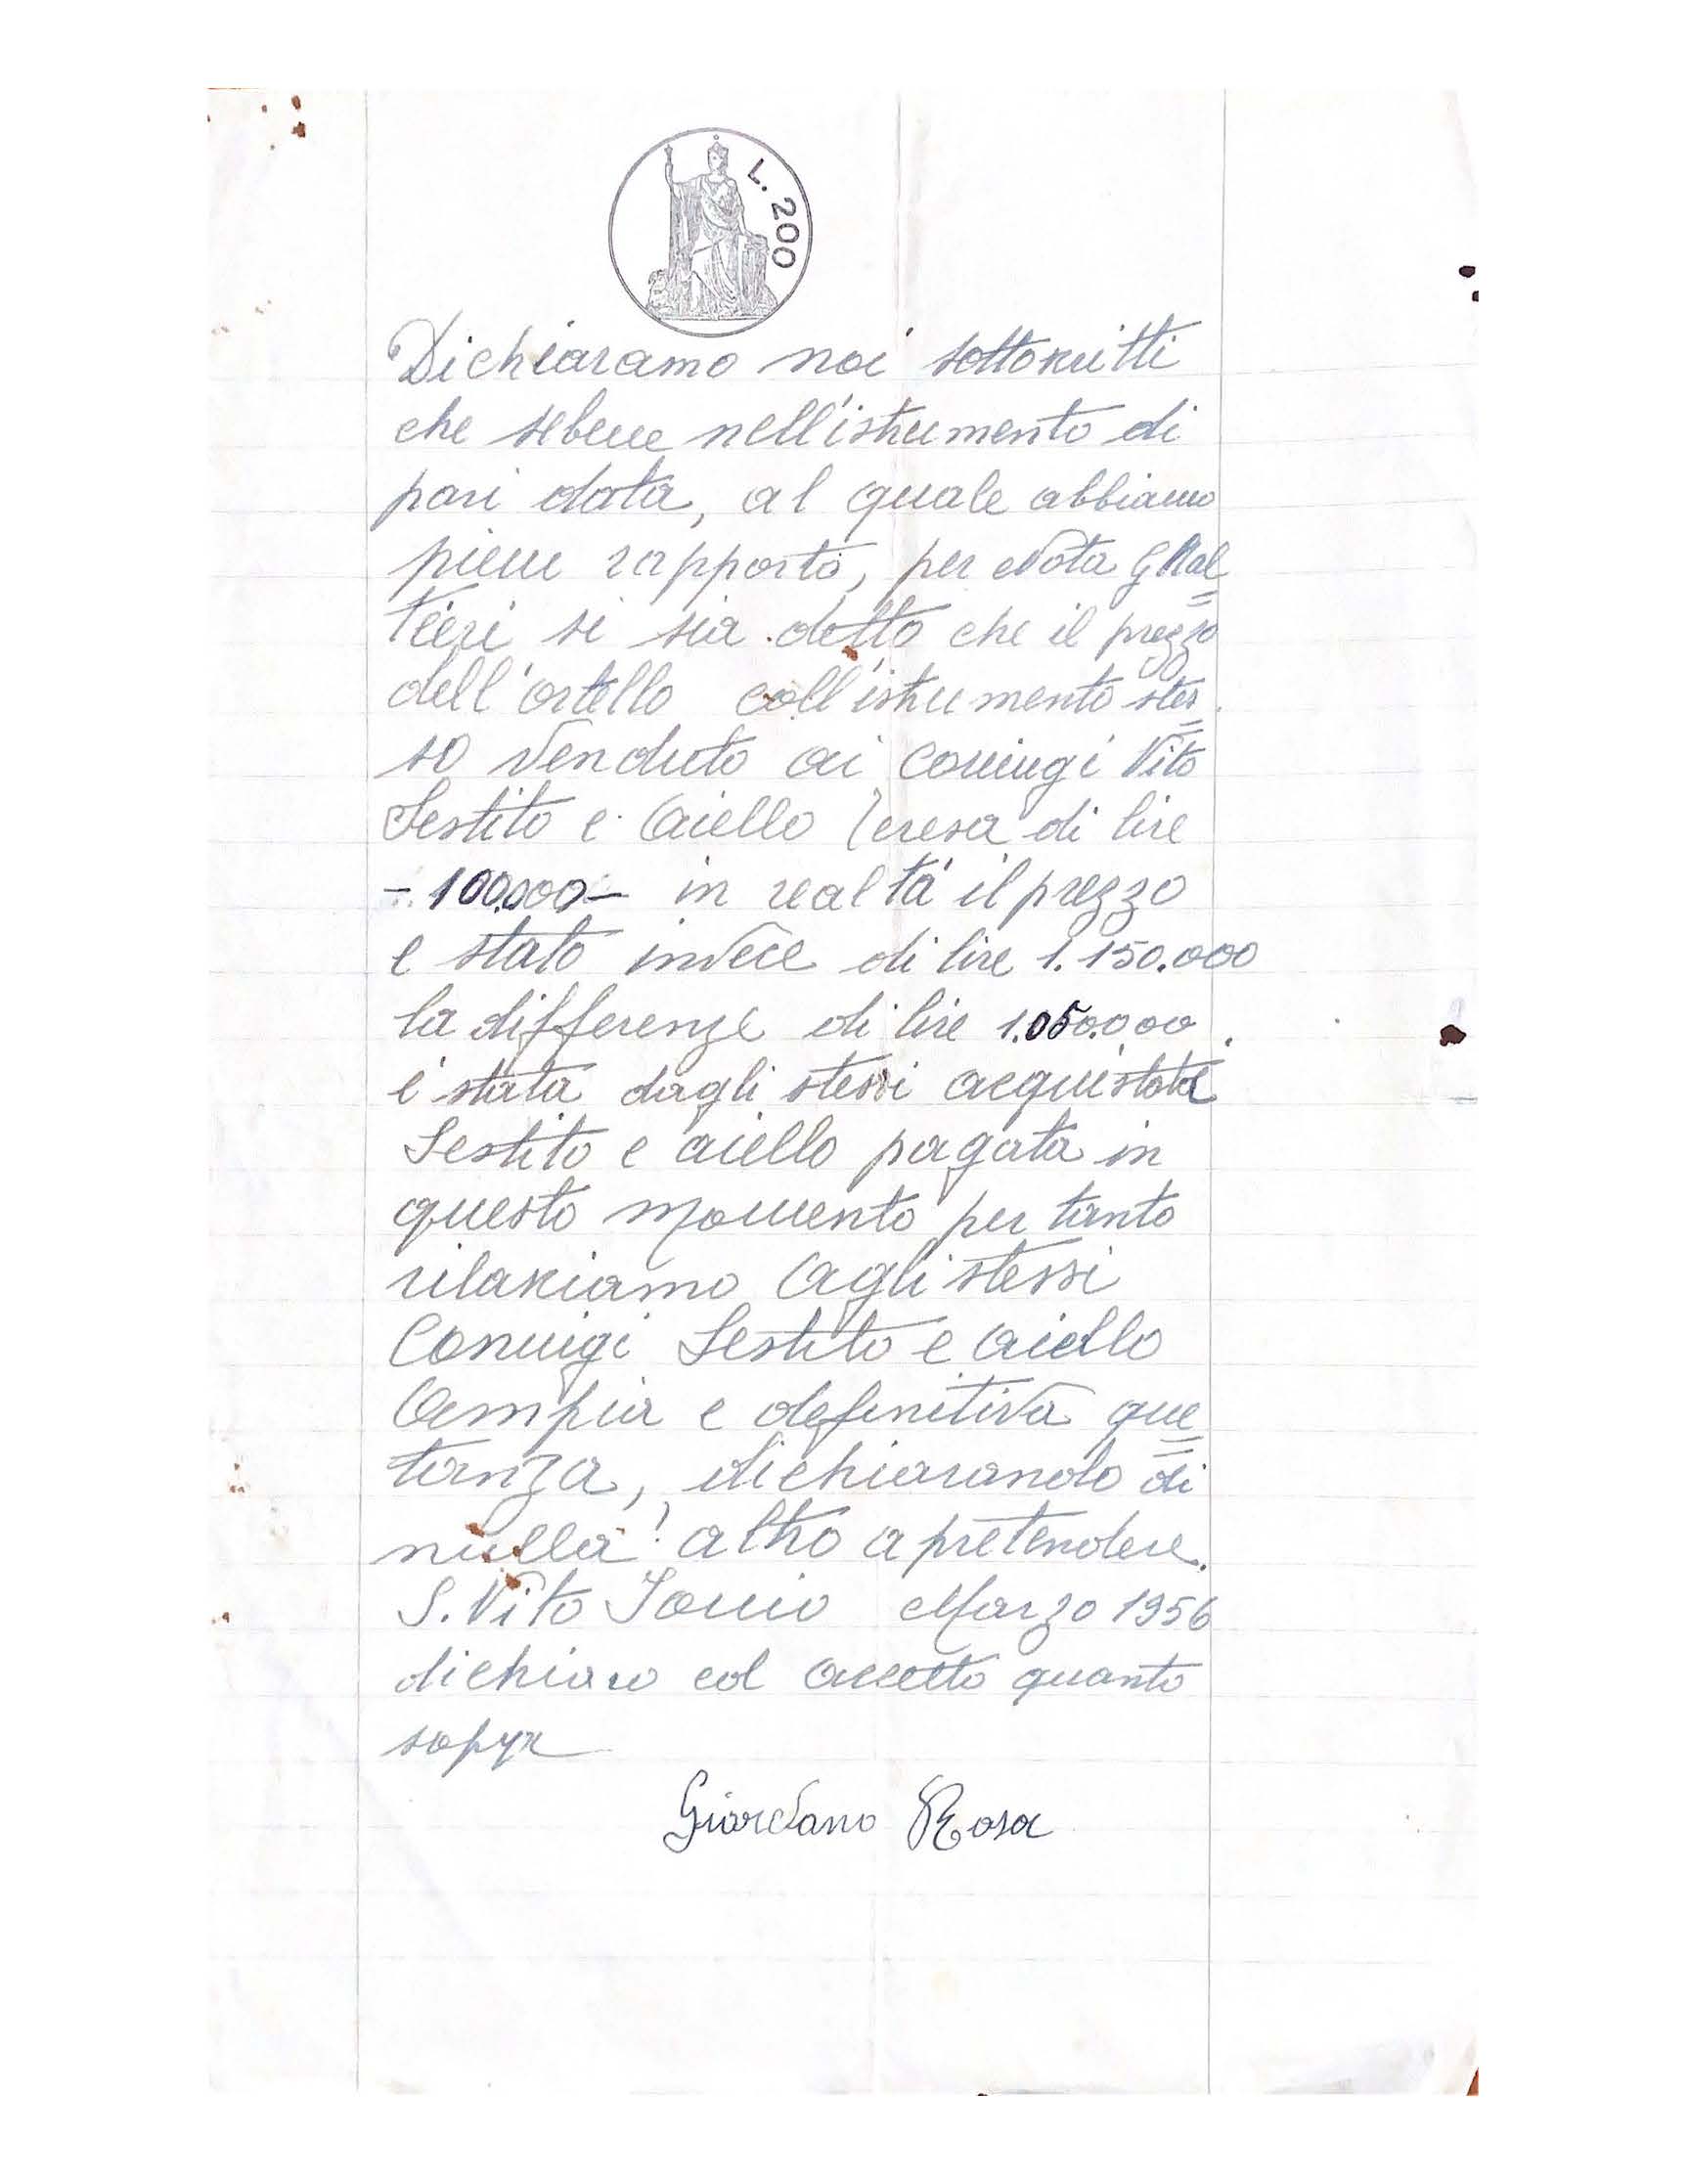 L. 200
Dichiaramo noi sottoscritti
che sebene nell'istrumento di
pari data, al quale abbiamo
pieno rapporto, per Nota Gual=
tieri si sia detto che il prezzo
dell'ortello coll'istrumento stes=
so venduto ai coniugi Vito
Sestito e Aiello Teresa di lire
- 100.000 - in realtá il prezzo
e stato invece di lire 1.150.000
la differenze di lire 1.050.000
é stata dagli stessi
Sestito e aiello pagata in
questo momento per tanto
rilasciamo agli stessi
Coniugi Sestito e aiello
Ampia e definitiva que=
tanza, dichiarando di
nulla altro a pretendere.
S. Vito Ionio Marzo 1956
dichiaro ed accetto quanto
sopra
Giordano Rosa